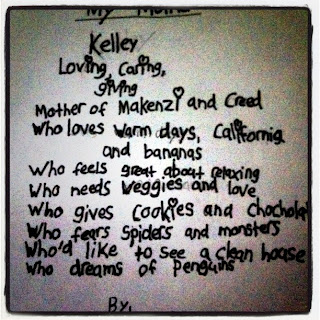 My
Kelley
Loving, Caring,
giving
Mother of Makenzi and Creed
Who loves warm days, California
and bananas
Who feels great about relaxing
Who needs Veggies and love
Who gives Cookies and Chocholat
Who fears Spiders and monsters
Who'd like to see a clean hoase
Who dreams of Penguins
By,